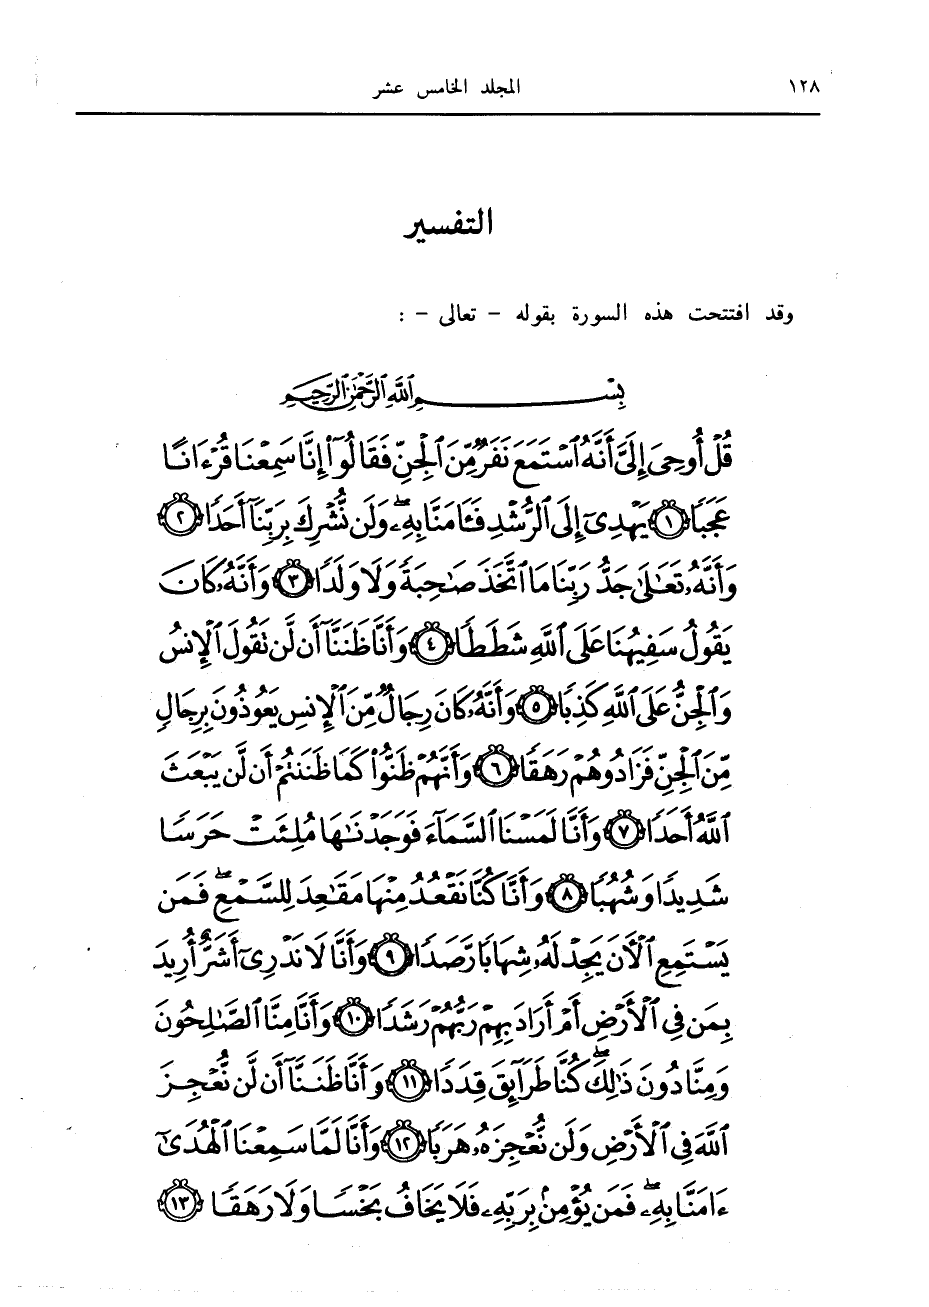 ١٢٨
المجلد الخامس عشر
التفسير
وقد افتتحت هذه السورة بقوله - تعالى - :
بِسْمِ ٱللَّهِ ٱلرَّحْمَٰنِ ٱلرَّحِيمِ
قُلْ أُوحِىَ إِلَىَّ أَنَّهُ ٱسْتَمَعَ نَفَرٌ مِّنَ ٱلْجِنِّ فَقَالُوٓا۟ إِنَّا سَمِعْنَا قُرْءَانًا
عَجَبًا ١ يَهْدِىٓ إِلَى ٱلرُّشْدِ فَـَٔامَنَّا بِهِۦ ۖ وَلَن نُّشْرِكَ بِرَبِّنَآ أَحَدًا ٢
وَأَنَّهُۥ تَعَٰلَىٰ جَدُّ رَبِّنَا مَا ٱتَّخَذَ صَٰحِبَةً وَلَا وَلَدًا ٣ وَأَنَّهُۥ كَانَ
يَقُولُ سَفِيهُنَا عَلَى ٱللَّهِ شَطَطًا ٤ وَأَنَّا ظَنَنَّآ أَن لَّن تَقُولَ ٱلْإِنسُ
وَٱلْجِنُّ عَلَى ٱللَّهِ كَذِبًا ٥ وَأَنَّهُۥ كَانَ رِجَالٌ مِّنَ ٱلْإِنسِ يَعُوذُونَ بِرِجَالٍ
مِّنَ ٱلْجِنِّ فَزَادُوهُمْ رَهَقًا ٦ وَأَنَّهُمْ ظَنُّوا۟ كَمَا ظَنَنتُمْ أَن لَّن يَبْعَثَ
ٱللَّهُ أَحَدًا ٧ وَأَنَّا لَمَسْنَا ٱلسَّمَآءَ فَوَجَدْنَٰهَا مُلِئَتْ حَرَسًا
شَدِيدًا وَشُهُبًا ٨ وَأَنَّا كُنَّا نَقْعُدُ مِنْهَا مَقَٰعِدَ لِلسَّمْعِ ۖ فَمَن
يَسْتَمِعِ ٱلْـَٔانَ يَجِدْ لَهُۥ شِهَابًا رَّصَدًا ٩ وَأَنَّا لَا نَدْرِىٓ أَشَرٌّ أُرِيدَ
بِمَن فِى ٱلْأَرْضِ أَمْ أَرَادَ بِهِمْ رَبُّهُمْ رَشَدًا ١٠ وَأَنَّا مِنَّا ٱلصَّٰلِحُونَ
وَمِنَّا دُونَ ذَٰلِكَ ۖ كُنَّا طَرَآئِقَ قِدَدًا ١١ وَأَنَّا ظَنَنَّآ أَن لَّن نُّعْجِزَ
ٱللَّهَ فِى ٱلْأَرْضِ وَلَن نُّعْجِزَهُۥ هَرَبًا ١٢ وَأَنَّا لَمَّا سَمِعْنَا ٱلْهُدَىٰٓ
ءَامَنَّا بِهِۦ ۖ فَمَن يُؤْمِنۢ بِرَبِّهِۦ فَلَا يَخَافُ بَخْسًا وَلَا رَهَقًا ١٣